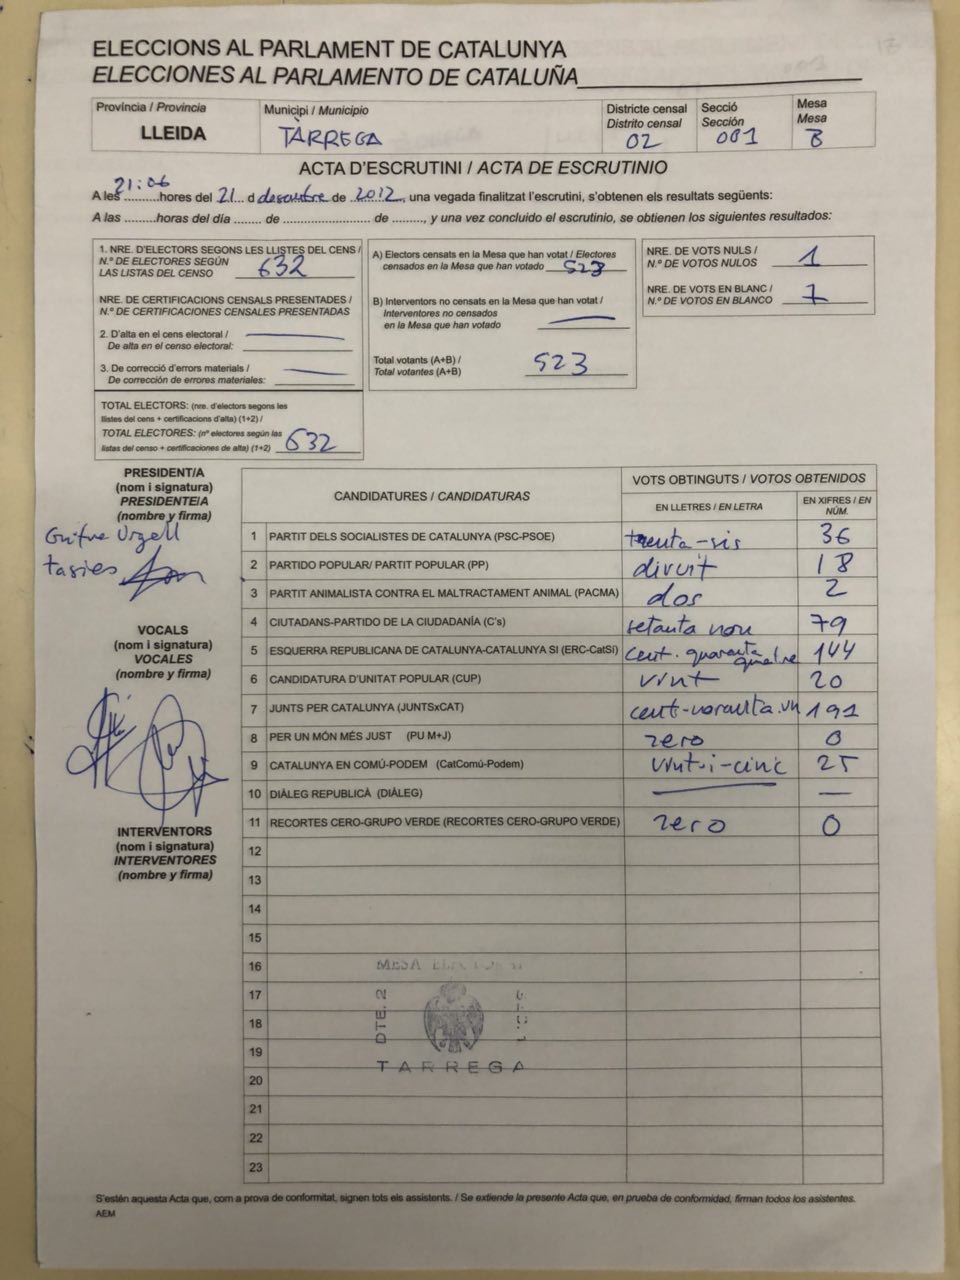 ELECCIONS AL PARLAMENT DE CATALUNYA
ELECCIONES AL PARLAMENTO DE CATALUÑA
Província / Provincia
LLEIDA
Municipi / Municipio
TÀRREGA
Districte censal
Distrito censal
02
Secció
Sección
001
Mesa
Mesa
B
ACTA D'ESCRUTINI / ACTA DE ESCRUTINIO
21:06
A les ..........hores del 21 d desembre de 2012, una vegada finalitzat l'escrutini, s'obtenen els resultats següents:
A las ..........horas del día ...... de ........................ de ........, y una vez concluido el escrutinio, se obtienen los siguientes resultados:
1. NRE. D'ELECTORS SEGONS LES LLISTES DEL CENS /
N.º DE ELECTORES SEGÚN
LAS LISTAS DEL CENSO 632
NRE. DE CERTIFICACIONS CENSALS PRESENTADES /
N.º DE CERTIFICACIONES CENSALES PRESENTADAS
2. D'alta en el cens electoral /
De alta en el censo electoral:
3. De correcció d'errors materials /
De corrección de errores materiales:
TOTAL ELECTORS: (nre. d'electors segons les
llistes del cens + certificacions d'alta) (1+2) /
TOTAL ELECTORES: (nº electores según las
listas del censo + certificaciones de alta) (1+2) 632
A) Electors censats en la Mesa que han votat / Electores
censados en la Mesa que han votado 523
B) Interventors no censats en la Mesa que han votat /
Interventores no censados
en la Mesa que han votado
Total votants (A+B) /
Total votantes (A+B) 523
NRE. DE VOTS NULS /
N.º DE VOTOS NULOS 1
NRE. DE VOTS EN BLANC /
N.º DE VOTOS EN BLANCO 7
PRESIDENT/A
(nom i signatura)
PRESIDENTE/A
(nombre y firma)
Guifre Urgell
Tasies
VOCALS
(nom i signatura)
VOCALES
(nombre y firma)
INTERVENTORS
(nom i signatura)
INTERVENTORES
(nombre y firma)
CANDIDATURES / CANDIDATURAS
VOTS OBTINGUTS / VOTOS OBTENIDOS
EN LLETRES / EN LETRA
EN XIFRES / EN
NÚM.
1 PARTIT DELS SOCIALISTES DE CATALUNYA (PSC-PSOE) trenta-sis 36
2 PARTIDO POPULAR/ PARTIT POPULAR (PP) divuit 18
3 PARTIT ANIMALISTA CONTRA EL MALTRACTAMENT ANIMAL (PACMA) dos 2
4 CIUTADANS-PARTIDO DE LA CIUDADANÍA (C's) setanta nou 79
5 ESQUERRA REPUBLICANA DE CATALUNYA-CATALUNYA SI (ERC-CatSí) cent. quaranta quatre 144
6 CANDIDATURA D'UNITAT POPULAR (CUP) vint 20
7 JUNTS PER CATALUNYA (JUNTSxCAT) cent-noranta.un 191
8 PER UN MÓN MÉS JUST (PU M+J) zero 0
9 CATALUNYA EN COMÚ-PODEM (CatComú-Podem) vint-i-cinc 25
10 DIÀLEG REPUBLICÀ (DIÀLEG) —
11 RECORTES CERO-GRUPO VERDE (RECORTES CERO-GRUPO VERDE) zero 0
12
13
14
15
16
17
18
19
20
21
22
23
MESA
DTE. 2
TARREGA
S'estén aquesta Acta que, com a prova de conformitat, signen tots els assistents. / Se extiende la presente Acta que, en prueba de conformidad, firman todos los asistentes.
AEM